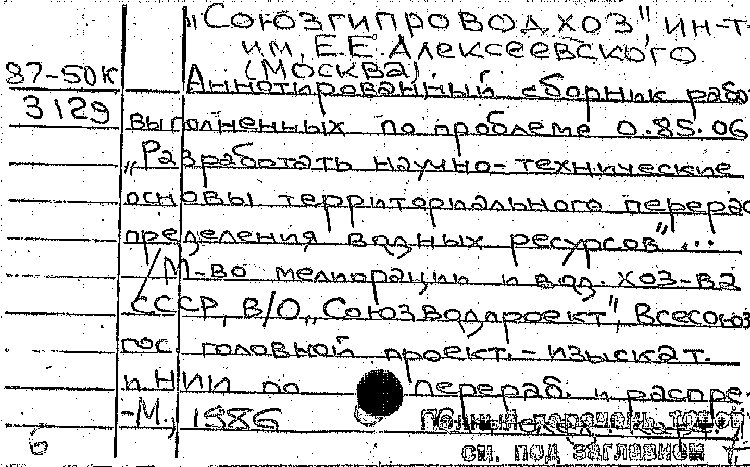 „Союзгипроводхоз", ин-т
им. Е.Е. Алексеевского
(Москва)
87-50к Аннотированный сборник рабо
3129
выполненных по проблеме 0.85.06
„Разработать научно-технические
основы территориального перерас
пределения водных ресурсов"...
/М-во мелиорации и вод. хоз-ва
СССР, В/О „Союзводпроект", Всесоюз
гос головной проект.-изыскат.
и НИИ по перераб. и распре
-М., 1986
Полный перечень томов
6 см. под заглавием